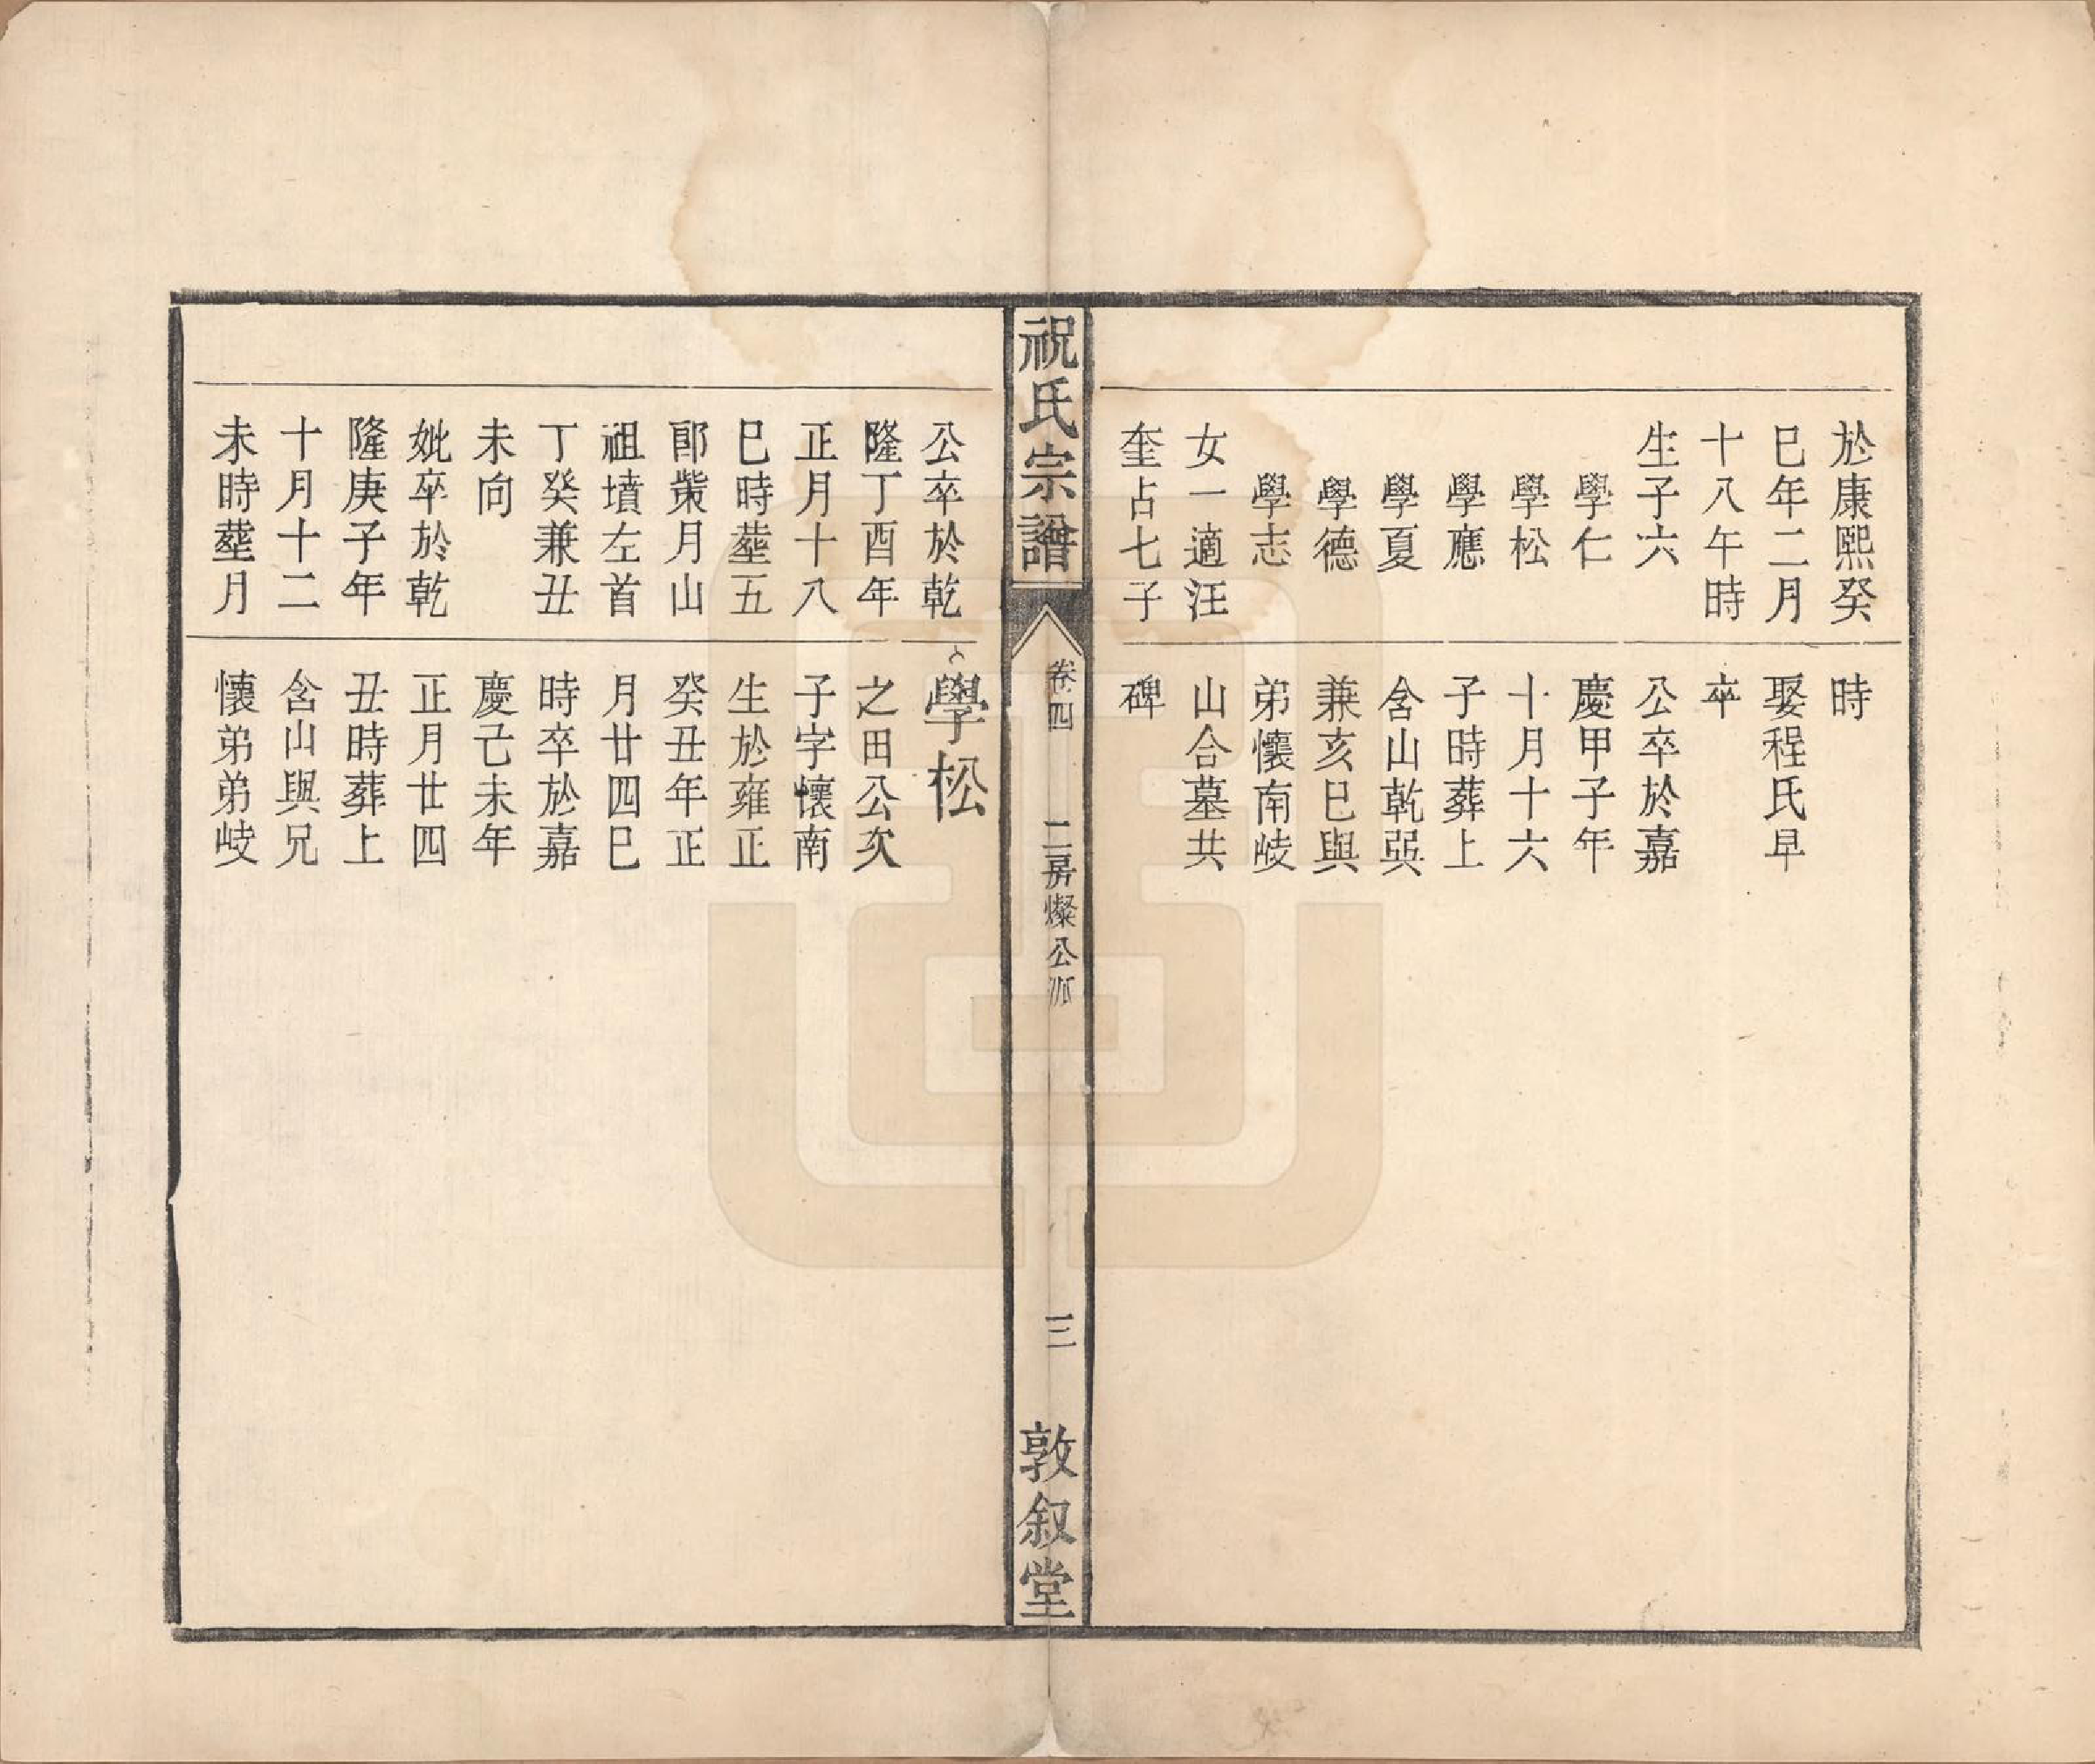 於康熙癸
巳年二月
十八午時
生子六
學仁
學松
學應
學夏
學德
學志
女一適汪
奎占七子
時
娶程氏早
卒
公卒於嘉
慶甲子年
十月十六
子時葬上
含山乾巽
兼亥巳與
弟懷南歧
山合墓共
碑
祝氏宗譜
卷四
二房燦公派
三
敦叙堂
公卒於乾
隆丁酉年
正月十八
巳時塟五
郎葉月山
祖墳左首
丁癸兼丑
未向
妣卒於乾
隆庚子年
十月十二
未時塟月
學松
之田公次
子字懷南
生於雍正
癸丑年正
月廿四巳
時卒於嘉
慶己未年
正月廿四
丑時葬上
含山與兄
懷弟弟歧